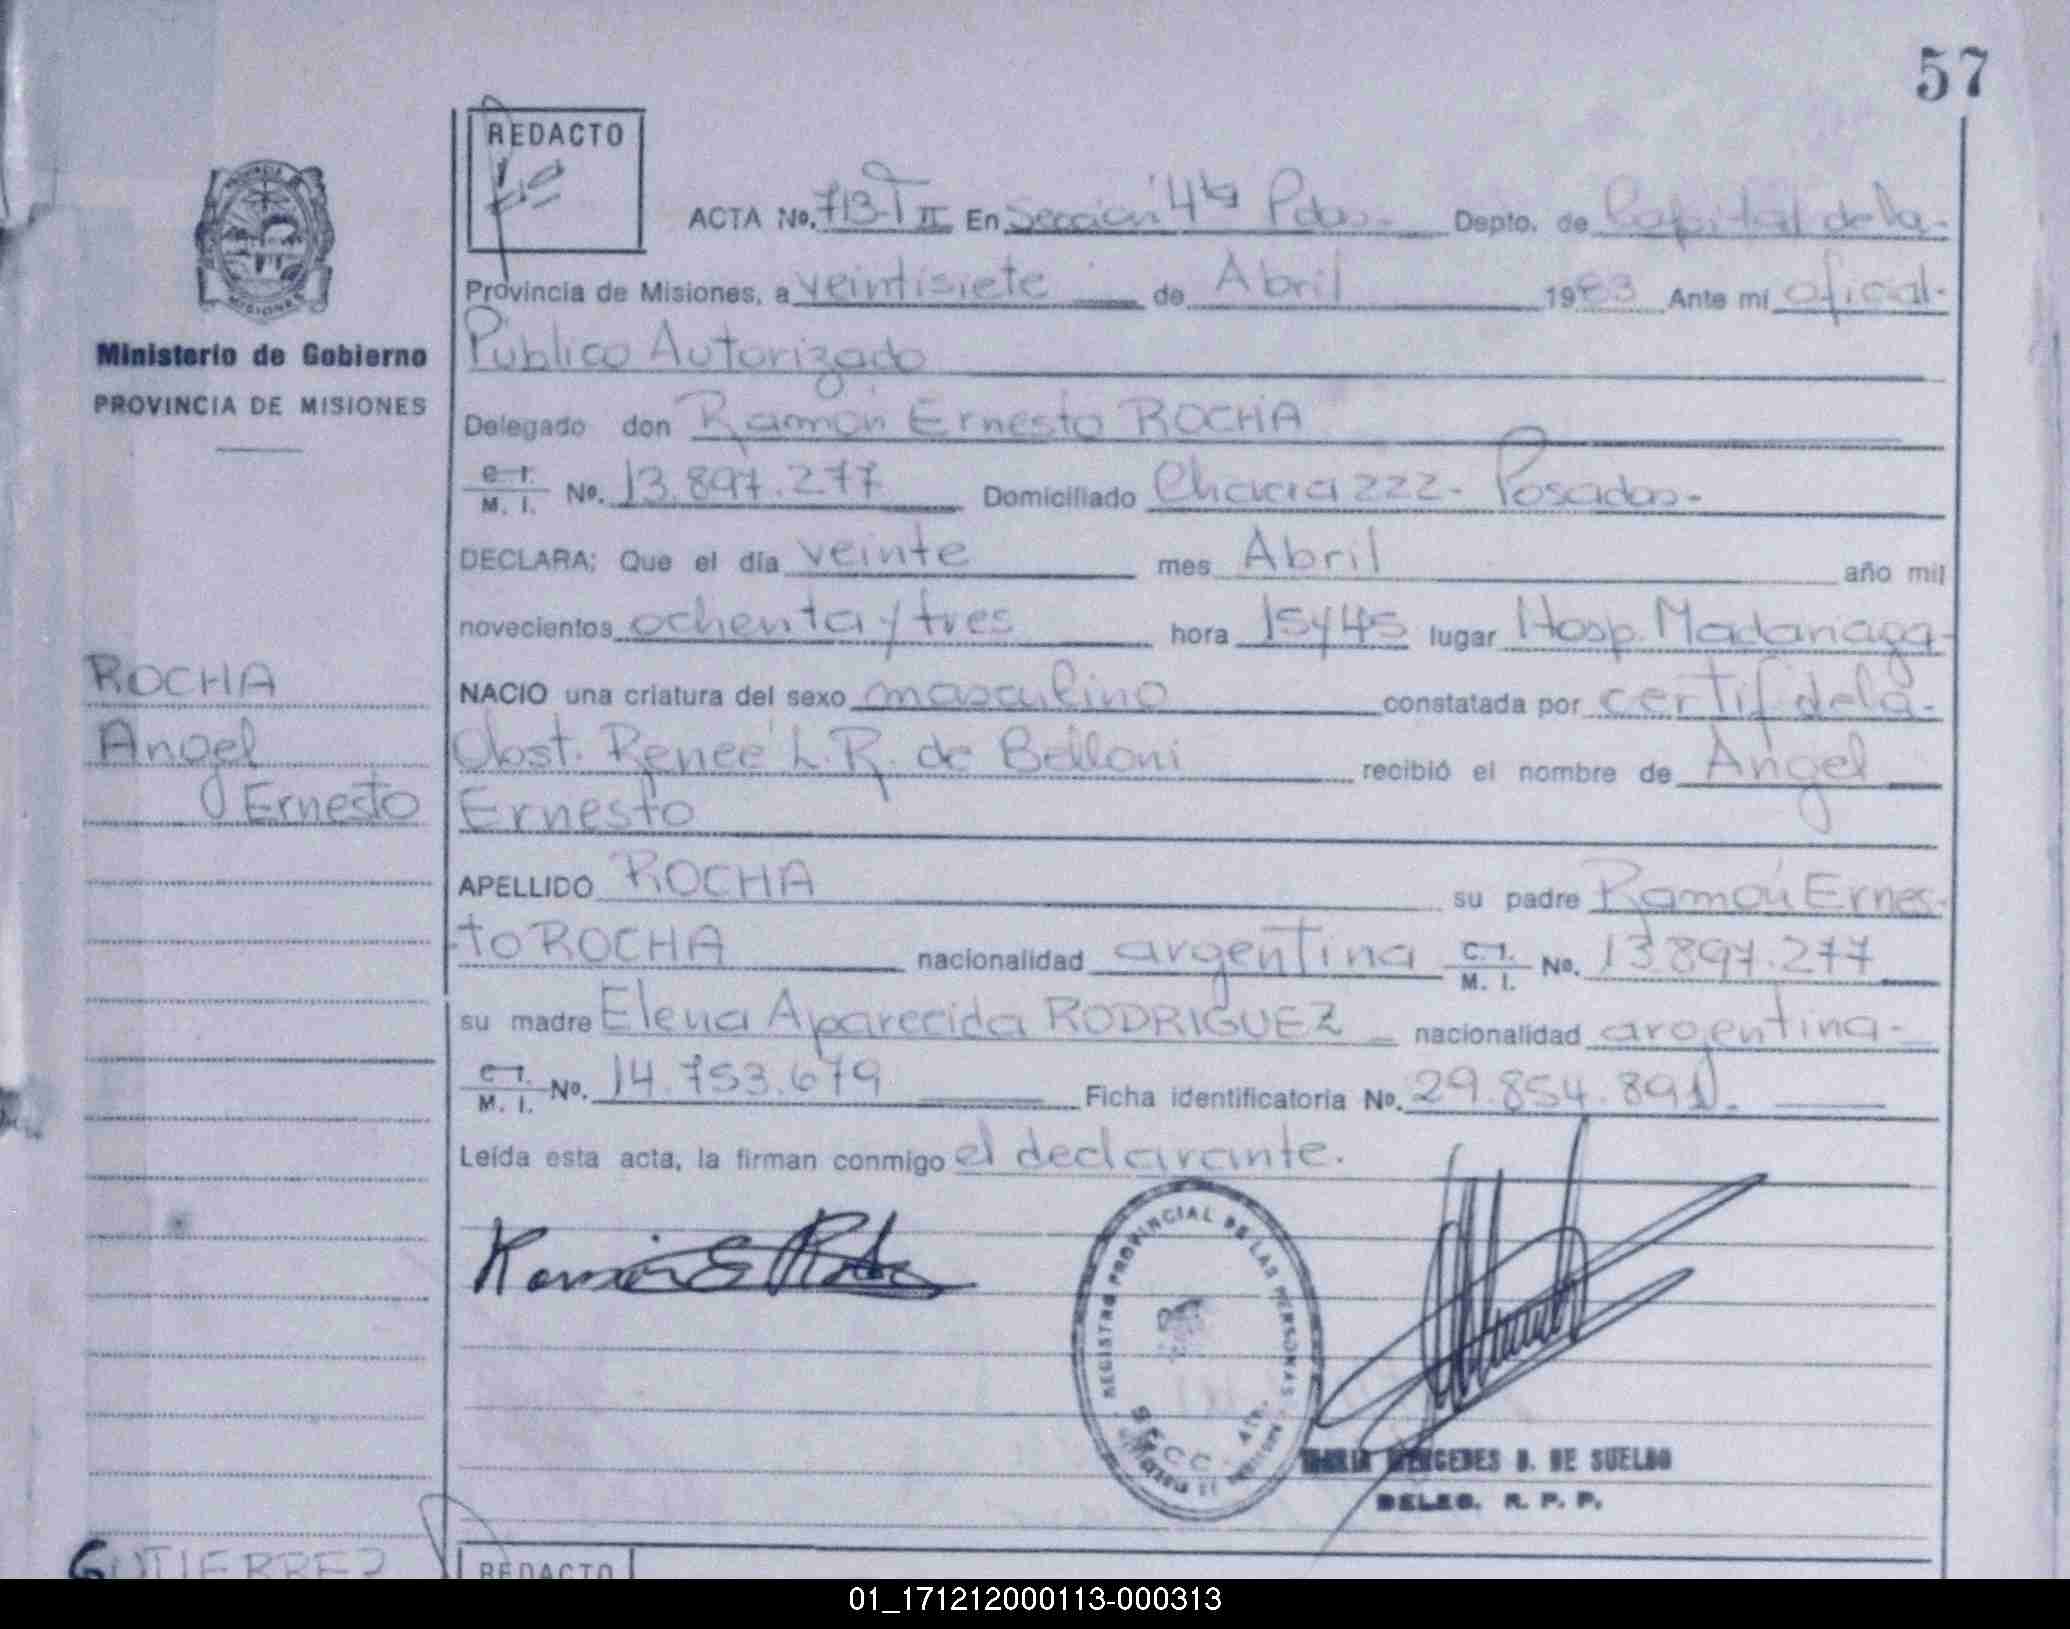 57
REDACTO
ACTA No. 713-T II En Sección 4ta Pdas.- Depto. de Capital de la-
Provincia de Misiones, a veintisiete de Abril 1983 Ante mí oficial-
Ministerio de Gobierno
Público Autorizado
PROVINCIA DE MISIONES
Delegado don Ramón Ernesto ROCHA
C. I. M. I. No. 13.897.277 Domiciliado Chacra 222- Posadas-
DECLARA: Que el día veinte mes Abril año mil
novecientos ochenta y tres hora 15y45 lugar Hosp. Madariaga-
ROCHA
NACIO una criatura del sexo masculino constatada por certif de la-
Angel
Obst. Renee L.R. de Belloni recibió el nombre de Angel
Ernesto
Ernesto
APELLIDO ROCHA su padre Ramón Ernes-
to ROCHA nacionalidad argentina C. I. M. I. No. 13.897.277
su madre Elena Aparecida RODRIGUEZ nacionalidad argentina-
C. I. M. I. No. 14.753.679 Ficha identificatoria No. 29.854.891.
Leída esta acta, la firman conmigo el declarante.
Ramón E Rocha
REGISTRO PROVINCIAL DE LAS PERSONAS
SECC. 4ta.
MARIA MERCEDES D. DE SUELDO
DELEG. R. P. P.
GUTIERREZ
REDACTO
01_171212000113-000313